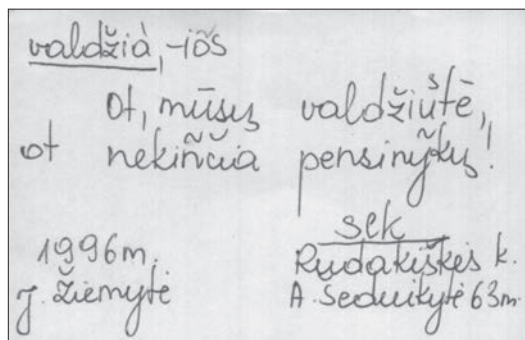 valdžià, -iõs
Ot, mūsų valdžiūtė,
ot nekiñčia pensinỹkų!
1996m. sek
J. Žiemytė Rudakiškės k.
A. Seduikytė 63m.